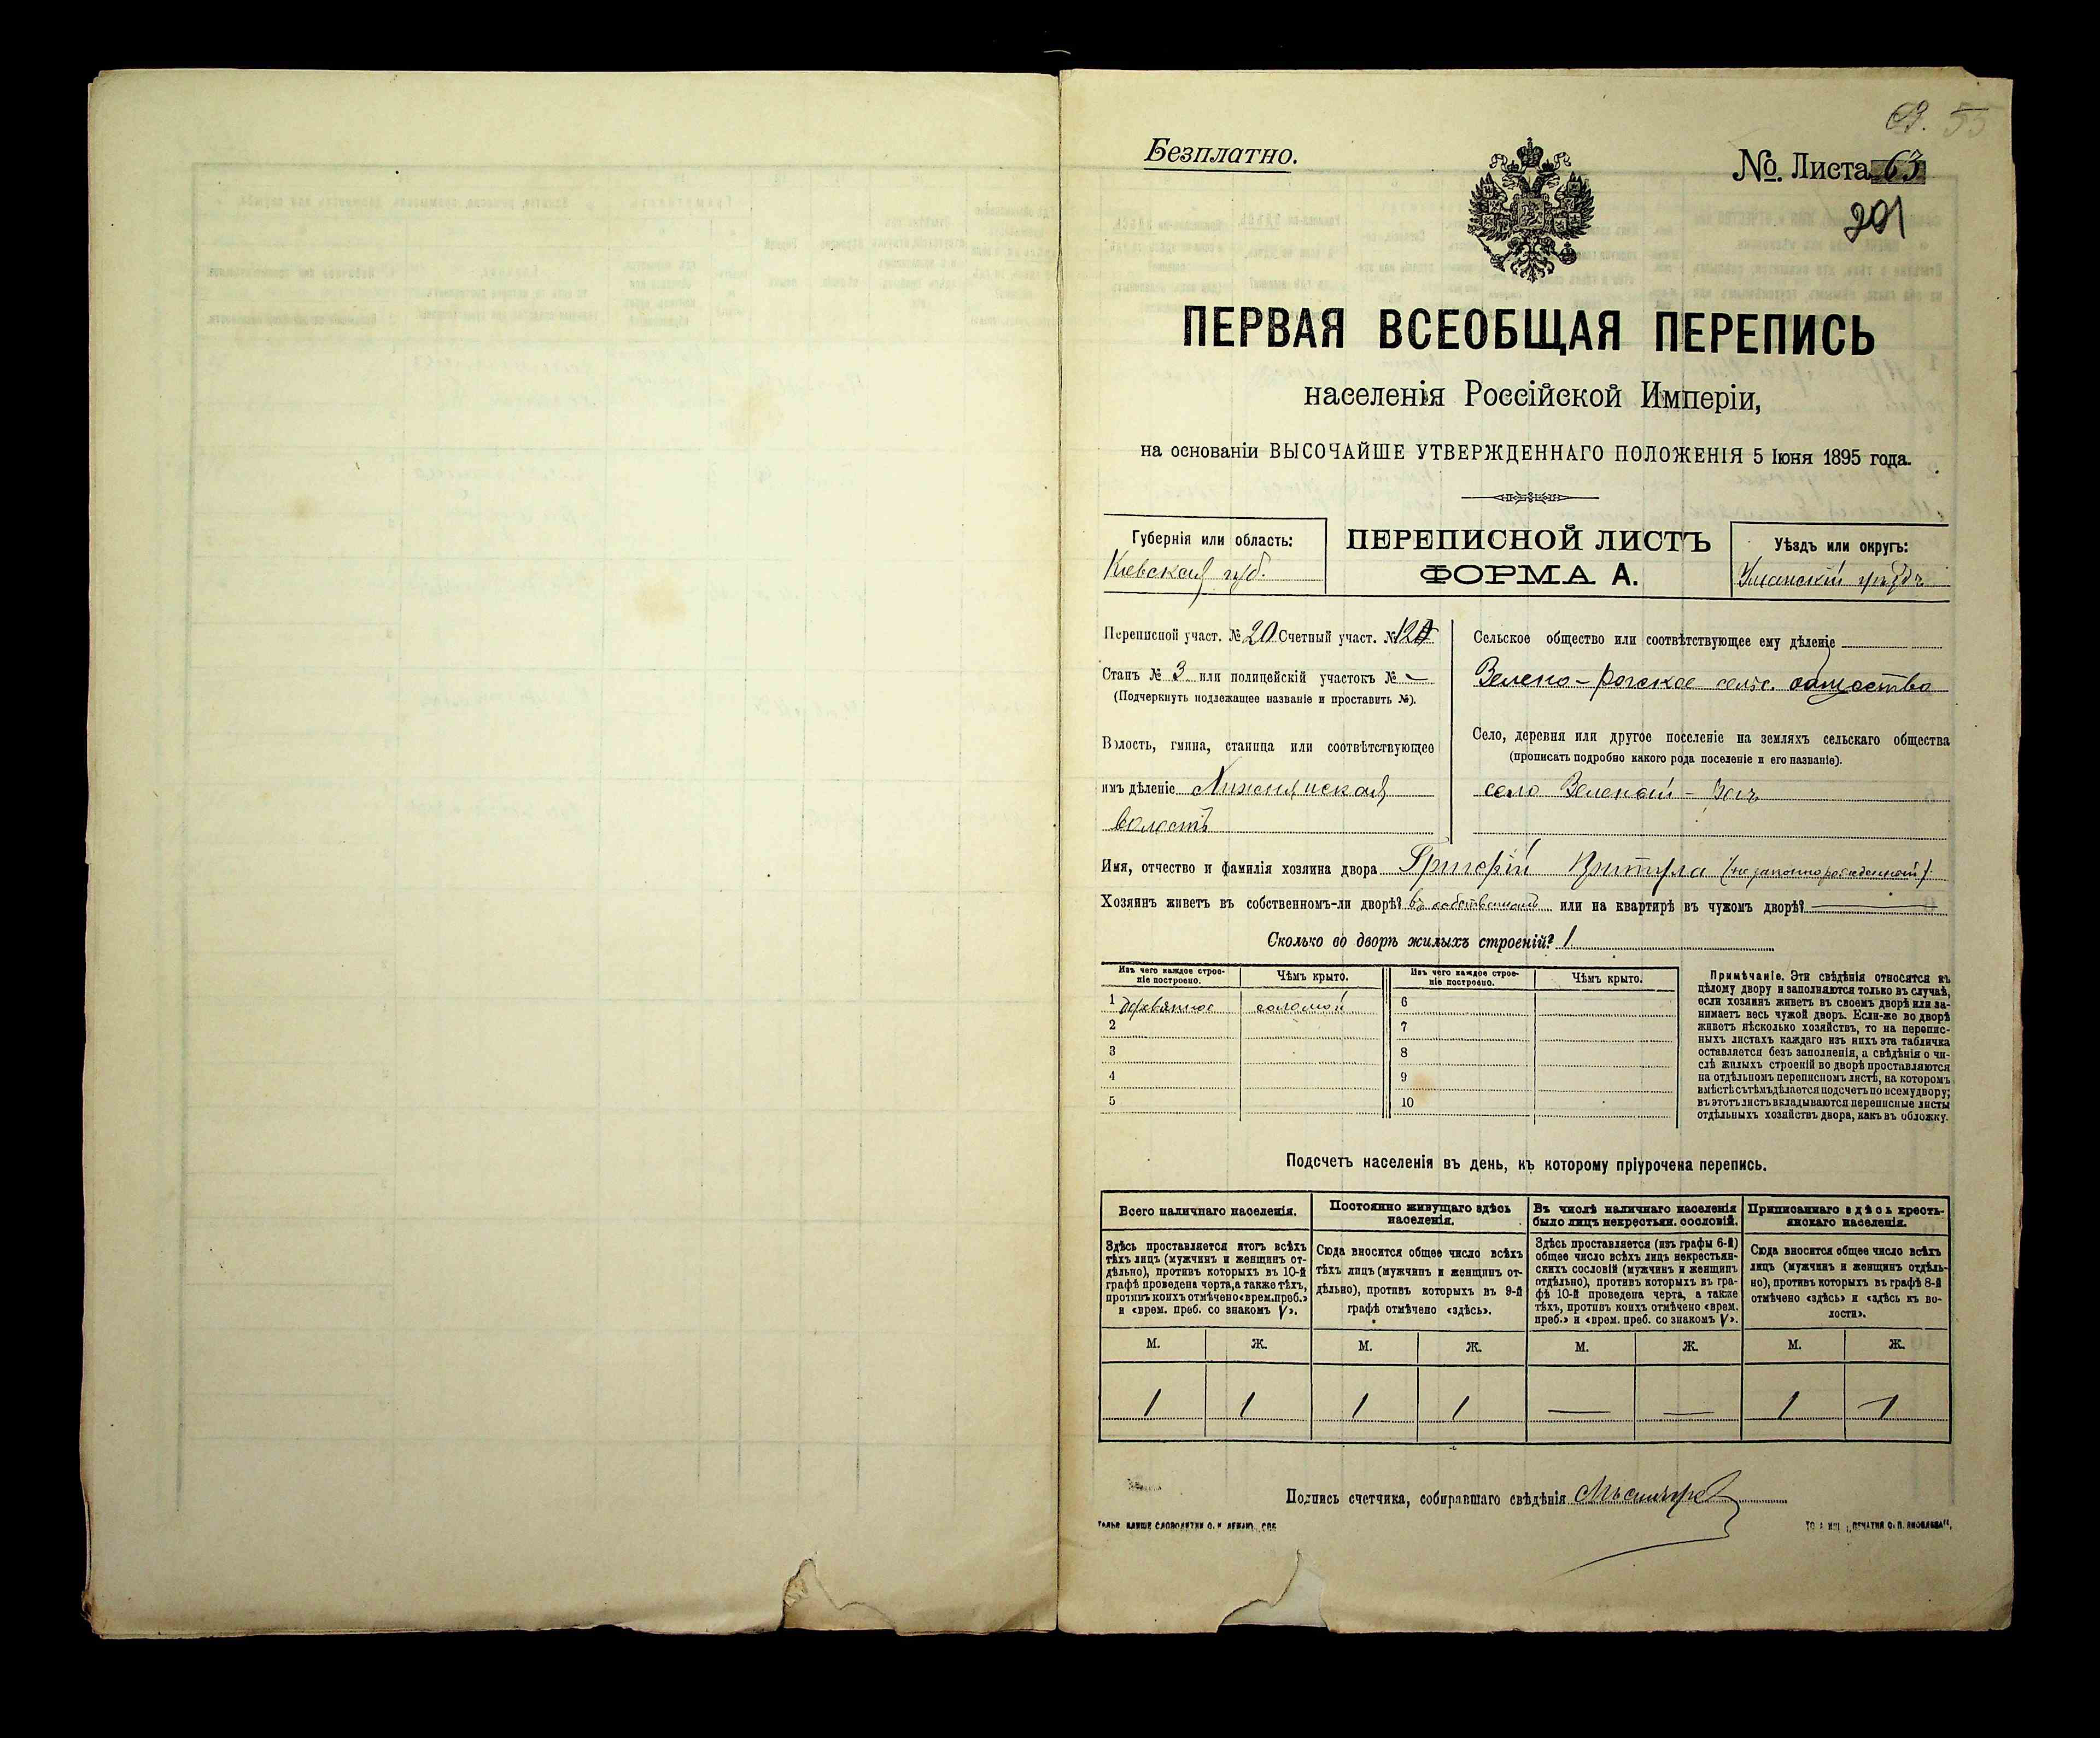 63. 55
Безплатно.
№. Листа 63
201
ПЕРВАЯ ВСЕОБЩАЯ ПЕРЕПИСЬ
населенія Россійской Имперіи,
на основаніи ВЫСОЧАЙШЕ УТВЕРЖДЕННАГО ПОЛОЖЕНІЯ 5 Іюня 1895 года.
Губернія или область:
Кіевская губ.
ПЕРЕПИСНОЙ ЛИСТЪ
ФОРМА А.
Уѣздъ или округъ:
Уманскій уѣздъ
Переписной участ. № 20 Счетный участ. №
Станъ № 3 или полицейскій участокъ № —
(Подчеркнуть подлежащее названіе и проставить №).
Волость, гмина, станица или соотвѣтствующее
имъ дѣленіе
волость
Сельское общество или соотвѣтствующее ему дѣленіе
Зелено-Рогское сельс. общество
Село, деревня или другое поселеніе на земляхъ сельскаго общества
(прописать подробно какого рода поселеніе и его названіе).
село Зеленый-Рогъ
Имя, отчество и фамилія хозяина двора Григорій Притула (незаконнорожденный)
Хозяинъ живетъ въ собственномъ-ли дворѣ? въ собственномъ или на квартирѣ въ чужомъ дворѣ? —
Сколько во дворѣ жилыхъ строеній? 1
Изъ чего каждое строеніе построено. Чѣмъ крыто. Изъ чего каждое строеніе построено. Чѣмъ крыто.
1 деревянное соломой 6
2 7
3 8
4 9
5 10
Примѣчаніе. Эти свѣдѣнія относятся къ
цѣлому двору и заполняются только въ случаѣ,
если хозяинъ живетъ въ своемъ дворѣ или за-
нимаетъ весь чужой дворъ. Если-же во дворѣ
живетъ нѣсколько хозяйствъ, то на перепис-
ныхъ листахъ каждаго изъ нихъ эта табличка
оставляется безъ заполненія, а свѣдѣнія о чи-
слѣ жилыхъ строеній во дворѣ проставляются
на отдѣльномъ переписномъ листѣ, на которомъ
вмѣстѣ съ тѣмъ дѣлается подсчетъ по всему двору;
въ этотъ листъ вкладываются переписные листы
отдѣльныхъ хозяйствъ двора, какъ въ обложку.
Подсчетъ населенія въ день, къ которому пріурочена перепись.
Всего наличнаго населенія.
Здѣсь проставляется итогъ всѣхъ
тѣхъ лицъ (мужчинъ и женщинъ от-
дѣльно), противъ которыхъ въ 10-й
графѣ проведена черта, а также тѣхъ,
противъ коихъ отмѣчено «врем. преб.»
и «врем. преб. со знакомъ V».
Постоянно живущаго здѣсь
населенія.
Сюда вносится общее число всѣхъ
тѣхъ лицъ (мужчинъ и женщинъ от-
дѣльно), противъ которыхъ въ 9-й
графѣ отмѣчено «здѣсь».
Въ числѣ наличнаго населенія
было лицъ некрестьян. сословій.
Здѣсь проставляется (изъ графы 6-й)
общее число всѣхъ лицъ некрестьян-
скихъ сословій (мужчинъ и женщинъ
отдѣльно), противъ которыхъ въ гра-
фѣ 10-й проведена черта, а также
тѣхъ, противъ коихъ отмѣчено «врем.
преб.» и «врем. преб. со знакомъ V».
Приписаннаго здѣсь кресть-
янскаго населенія.
Сюда вносится общее число всѣхъ
лицъ (мужчинъ и женщинъ отдѣль-
но), противъ которыхъ въ графѣ 8-й
отмѣчено «здѣсь» и «здѣсь къ во-
лости».
М. Ж. М. Ж. М. Ж. М. Ж.
1 1 1 1 — — 1 1
Подпись счетчика, собиравшаго свѣдѣнія